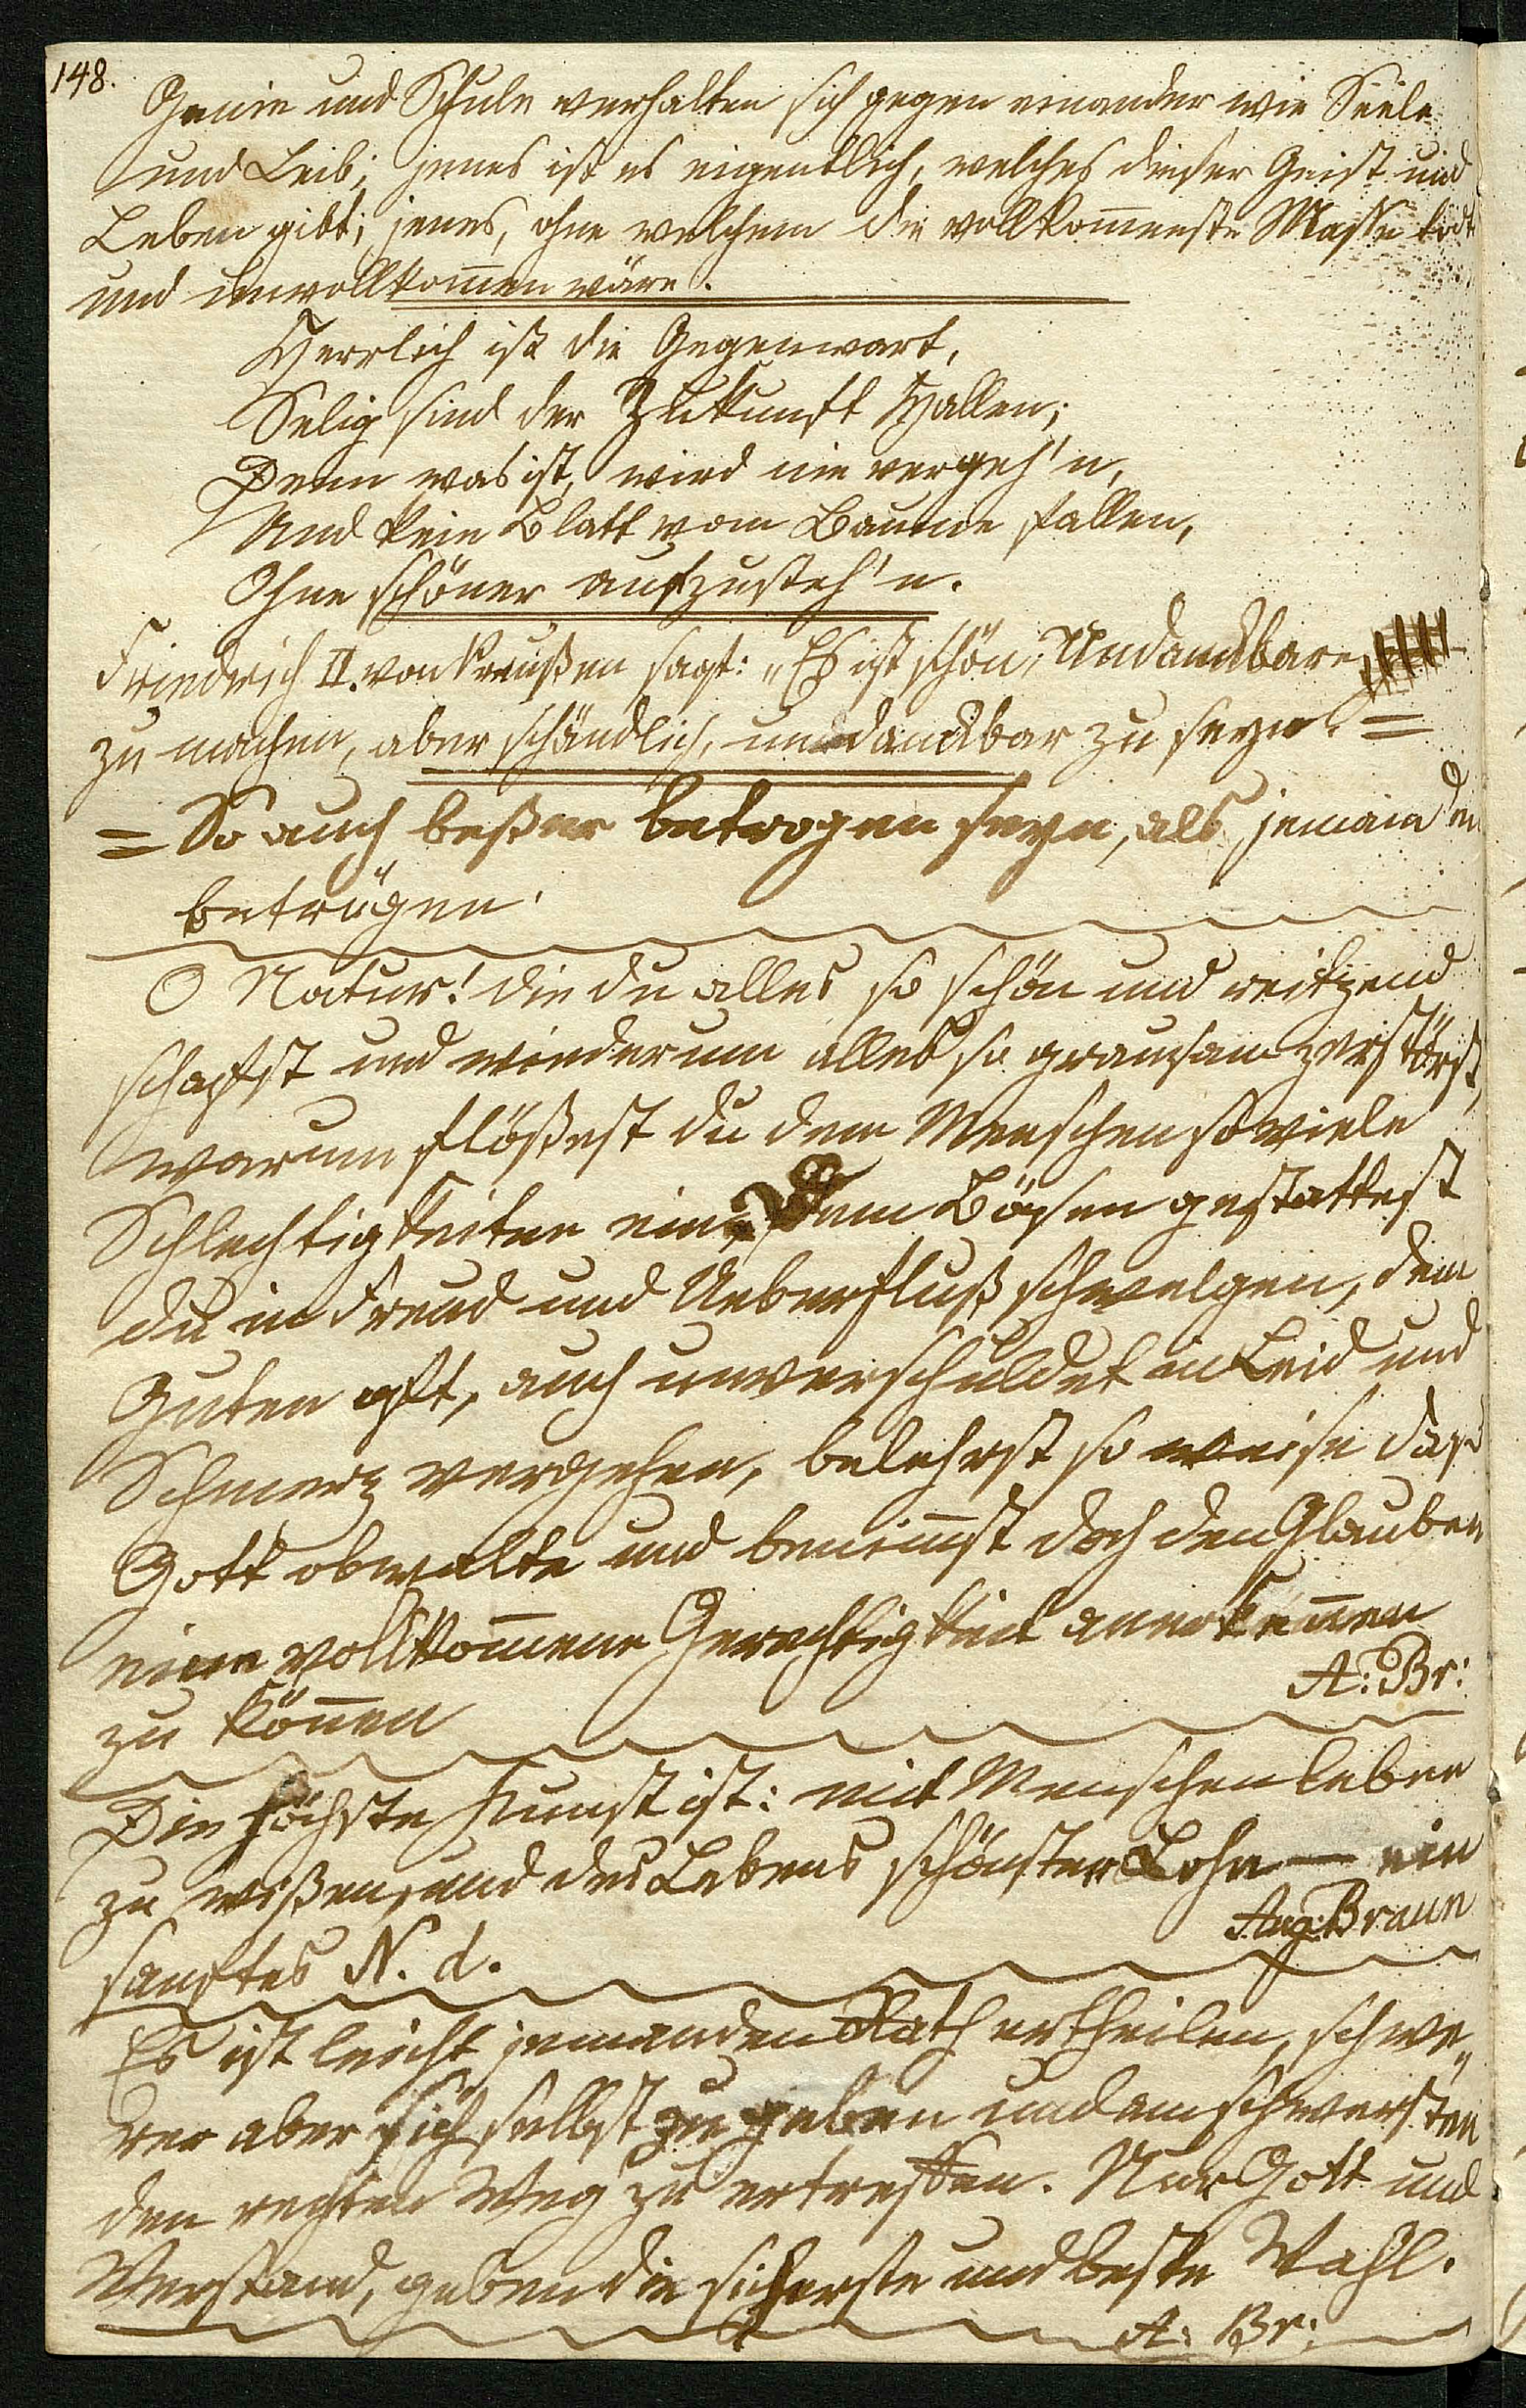 148.
Genie und Schule verhalten sich gegen einander wie Seele
und Leib; jenes ist es eigentlich, welches dieser Geist und
Leben gibt; jenes, ohne welchem die vollkom̄enste Masse todt
und unvollkom̄en wäre.
Herrlich ist die Gegenwart,
Selig sind der Zukunft Hallen;
Denn was ist, wird nie vergeh'n,
Und kein Blatt vom Baume fallen,
Ohne schöner aufzusteh'n.
Friedrich II. von Preußen sagt: „Es ist schön, Undankbare
zu machen, aber schändlich, undankbar zu seyn. =
= So auch beßer betrogen seyn, als jemanden
betrügen.
O Natur! die du alles so schön und reitzend
schafst und wiederum alles so grausam zerstörst,
warum flößest du dem Menschen so viele
Schlechtigkeiten ein, dem Bösen gestattest
du in Freud und Ueberfluß schwelgen, dem
Guten oft, auch unverschuldet in Leid und
Schmerz vergehen, belehrst so weise daß
Gott obwalte und benim̄st doch den Glauben
eine vollkom̄ene Gerechtigkeit anerken̄en
zu kön̄en
A: Br:
Die höchste Kunst ist: mit Menschen leben
zu wißen, und des Lebens schönster Lohn — ein
sanftes N. d.
Aug: Braun
Es ist leicht jemanden Rath ertheilen, schwe„
rer aber sich selbst zu geben und am schwersten
den rechten Weg zu ertreffen. Nur Gott und
Verstand, geben die sicherste und beste Wahl.
A: Br: